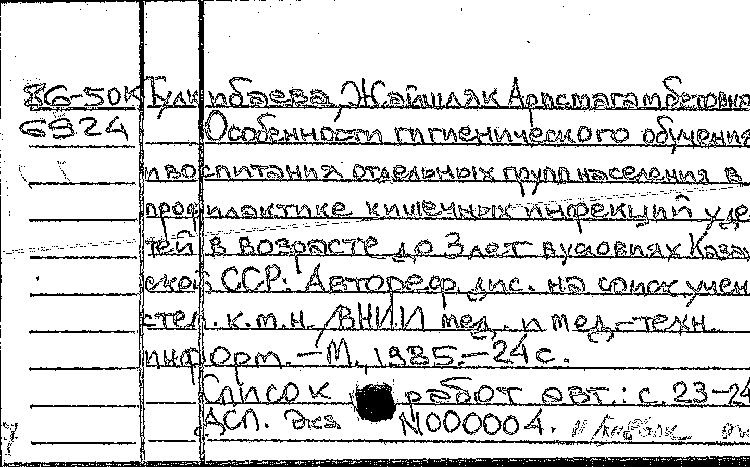 86-50К Тулкибаева, Жайшляк Арпстагамбетовна
6924 Особенности гигиенического обучения
и воспитания отдельных групп населения в
профилактике кишечных инфекций у де
тей в возрасте до 3 лет в условиях Каза
ской ССР: Автореф. дис. на соиск. учен
степ. к.м.н. /ВНИИ мед. и мед.-техн.
информ. - М., 1985. - 24 с.
Список работ авт.: с. 23-24
ДСП. Экз N000004.